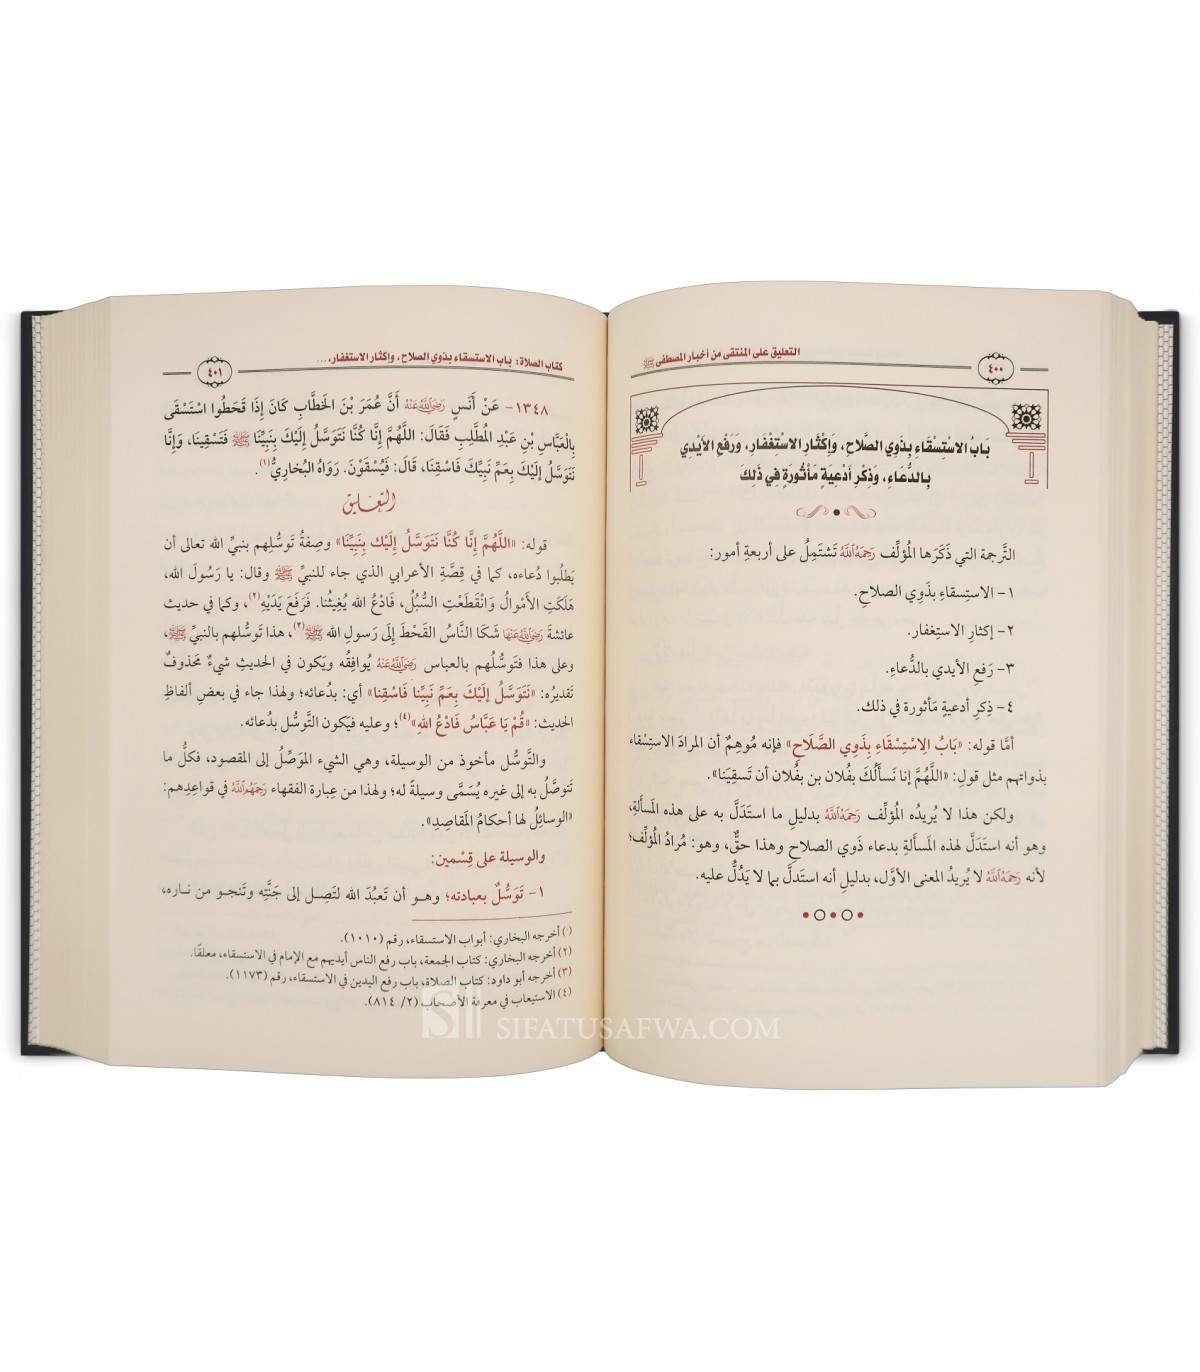 التعليق على المنتقى من أخبار المصطفى ﷺ
٤٠٠
بَابُ الاسْتِسْقَاءِ بِذَوِي الصَّلَاحِ، وَإِكْثَارِ الاسْتِغْفَارِ، وَرَفْعِ الأَيْدِي
بِالدُّعَاءِ، وَذِكْرِ أَدْعِيَةٍ مَأْثُورَةٍ فِي ذَلِكَ
التَّرجمة التي ذَكَرَها المُؤلِّف رَحِمَهُ اللَّهُ تَشتَمِلُ على أربعةِ أمور:
١- الاستِسقاءِ بذَوِي الصلاحِ.
٢- إكثارِ الاستِغفار.
٣- رَفعِ الأيدي بالدُّعاءِ.
٤- ذِكرِ أدعيةٍ مَأثورة في ذلك.
أمَّا قوله: «بَابُ الِاسْتِسْقَاءِ بِذَوِي الصَّلَاحِ» فإنه مُوهِمٌ أن المرادَ الاستِسْقاء
بذواتهم مثل قولِ: «اللَّهُمَّ إنا نَسأَلُكَ بفُلان بن بفُلان أن تَسقِيَنا».
ولكن هذا لا يُريدُه المُؤلِّف رَحِمَهُ اللَّهُ بدليلِ ما استَدَلَّ به على هذه المَسأَلةِ،
وهو أنه استَدَلَّ لهذه المَسأَلة بدعاء ذَوي الصلاحِ وهذا حقٌّ، وهو: مُرادُ المُؤلِّف؛
لأنه رَحِمَهُ اللَّهُ لا يُريدُ المعنى الأوَّل، بدليلِ أنه استَدَلَّ بما لا يَدُلُّ عليه.
كتاب الصلاة: باب الاستسقاء بذوي الصلاح، وإكثار الاستغفار،...
٤٠١
١٣٤٨- عَنْ أَنَسٍ رَضِيَ اللَّهُ عَنْهُ أَنَّ عُمَرَ بْنَ الخَطَّابِ كَانَ إِذَا قَحَطُوا اسْتَسْقَى
بِالْعَبَّاسِ بْنِ عَبْدِ المُطَّلِبِ فَقَالَ: اللَّهُمَّ إِنَّا كُنَّا نَتَوَسَّلُ إِلَيْكَ بِنَبِيِّنَا ﷺ فَتَسْقِينَا، وَإِنَّا
نَتَوَسَّلُ إِلَيْكَ بِعَمِّ نَبِيِّكَ فَاسْقِنَا، قَالَ: فَيُسْقَوْنَ. رَوَاهُ البُخَارِيُّ(١).
التعليق
قوله: «اللَّهُمَّ إِنَّا كُنَّا نَتَوَسَّلُ إِلَيْك بِنَبِيِّنَا» وصِفةُ تَوسُّلِهم بنبيِّ الله تعالى أن
يَطلُبوا دُعاءه، كما في قِصَّةِ الأعرابي الذي جاء للنبيِّ ﷺ وقال: يا رَسُولَ الله،
هَلَكَتِ الأَمْوالُ وَانْقَطَعْتِ السُّبُلُ، فَادْعُ الله يُغِيثُنا. فَرَفَعَ يَدَيْهِ(٢)، وكما في حديث
عائشةَ رَضِيَ اللَّهُ عَنْهَا شَكَا النَّاسُ القَحْطَ إِلَى رَسولِ الله ﷺ(٣)، هذا تَوسُّلهم بالنبيِّ ﷺ،
وعلى هذا فتَوسُّلُهم بالعباس رَضِيَ اللَّهُ عَنْهُ يُوافِقُه ويَكون في الحديثِ شيءٌ مَحذوفٌ
تقديرُه: «نَتَوَسَّلُ إلَيْكَ بِعَمِّ نَبِيِّنا فَاسْقِنا» أي: بدُعائه؛ ولهذا جاء في بعضِ ألفاظِ
الحديث: «قُمْ يَا عَبَّاسُ فَادْعُ اللهِ»(٤)؛ وعليه فيَكون التَّوسُّل بدُعائه.
والتَّوسُّل مأخوذ من الوسيلة، وهي الشيء المُوَصِّل إلى المقصود، فكلُّ ما
تَتوصَّلُ به إلى غيره يُسَمَّى وسيلةً له؛ ولهذا من عِبارة الفقهاء رَحِمَهُمُ اللَّهُ في قواعِدِهم:
«الوسائلُ لها أحكامُ المَقاصِدِ».
والوسيلة على قِسْمين:
١- تَوَسُّلٌ بعبادته؛ وهو أن تَعبُدَ الله لتَصِل إلى جَنَّتِه وتَنجو من ناره،
(١) أخرجه البخاري: أبواب الاستسقاء، رقم (١٠١٠).
(٢) أخرجه البخاري: كتاب الجمعة، باب رفع الناس أيديهم مع الإمام في الاستسقاء، معلقًا.
(٣) أخرجه أبو داود: كتاب الصلاة، باب رفع اليدين في الاستسقاء، رقم (١١٧٣).
(٤) الاستيعاب في معرفة الأصحاب (٢/ ٨١٤).
SIFATUSAFWA.COM